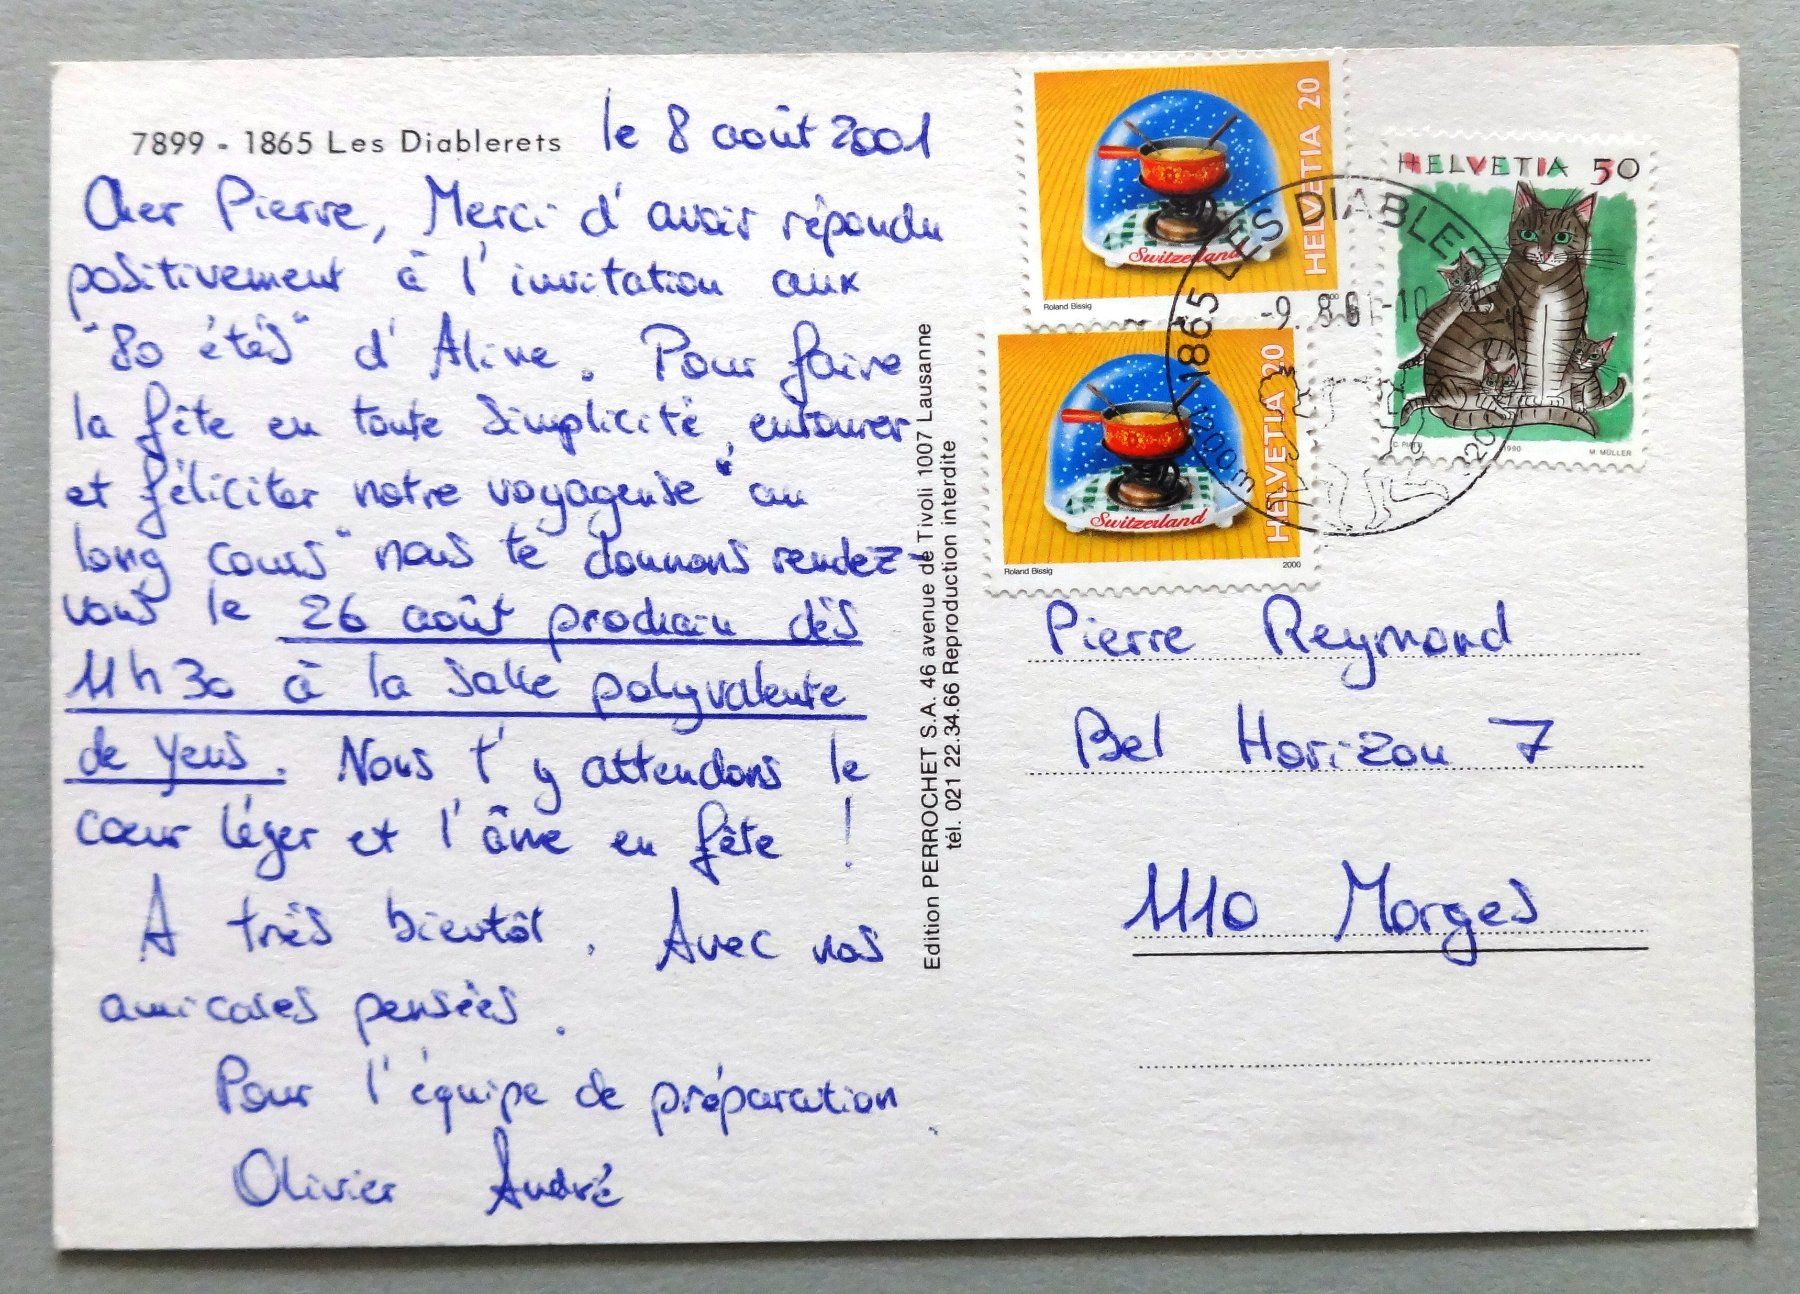 7899 - 1865 Les Diablerets
le 8 août 2001
Cher Pierre, Merci d'avoir répondu
positivement à l'invitation aux
"80 étés" d'Aline. Pour faire
la fête en toute simplicité, entourer
et féliciter notre voyageuse "au
long cours" nous te donnons rendez-
vous le 26 août prochain dès
11h30 à la salle polyvalente
de Yens. Nous t'y attendons le
cœur léger et l'âme en fête !
A très bientôt. Avec nos
amicales pensées.
Pour l'équipe de préparation
Olivier André
Edition PERROCHET S.A. 46 avenue de Tivoli 1007 Lausanne
tél. 021 22.34.66 Reproduction interdite
HELVETIA 20
Switzerland
Roland Bissig
HELVETIA 20
Switzerland
Roland Bissig
2000
HELVETIA 50
1990
M. MÜLLER
1865 LES DIABLER
-9. 8.01-10
1200m
Pierre Reymond
Bel Horizon 7
1110 Morges